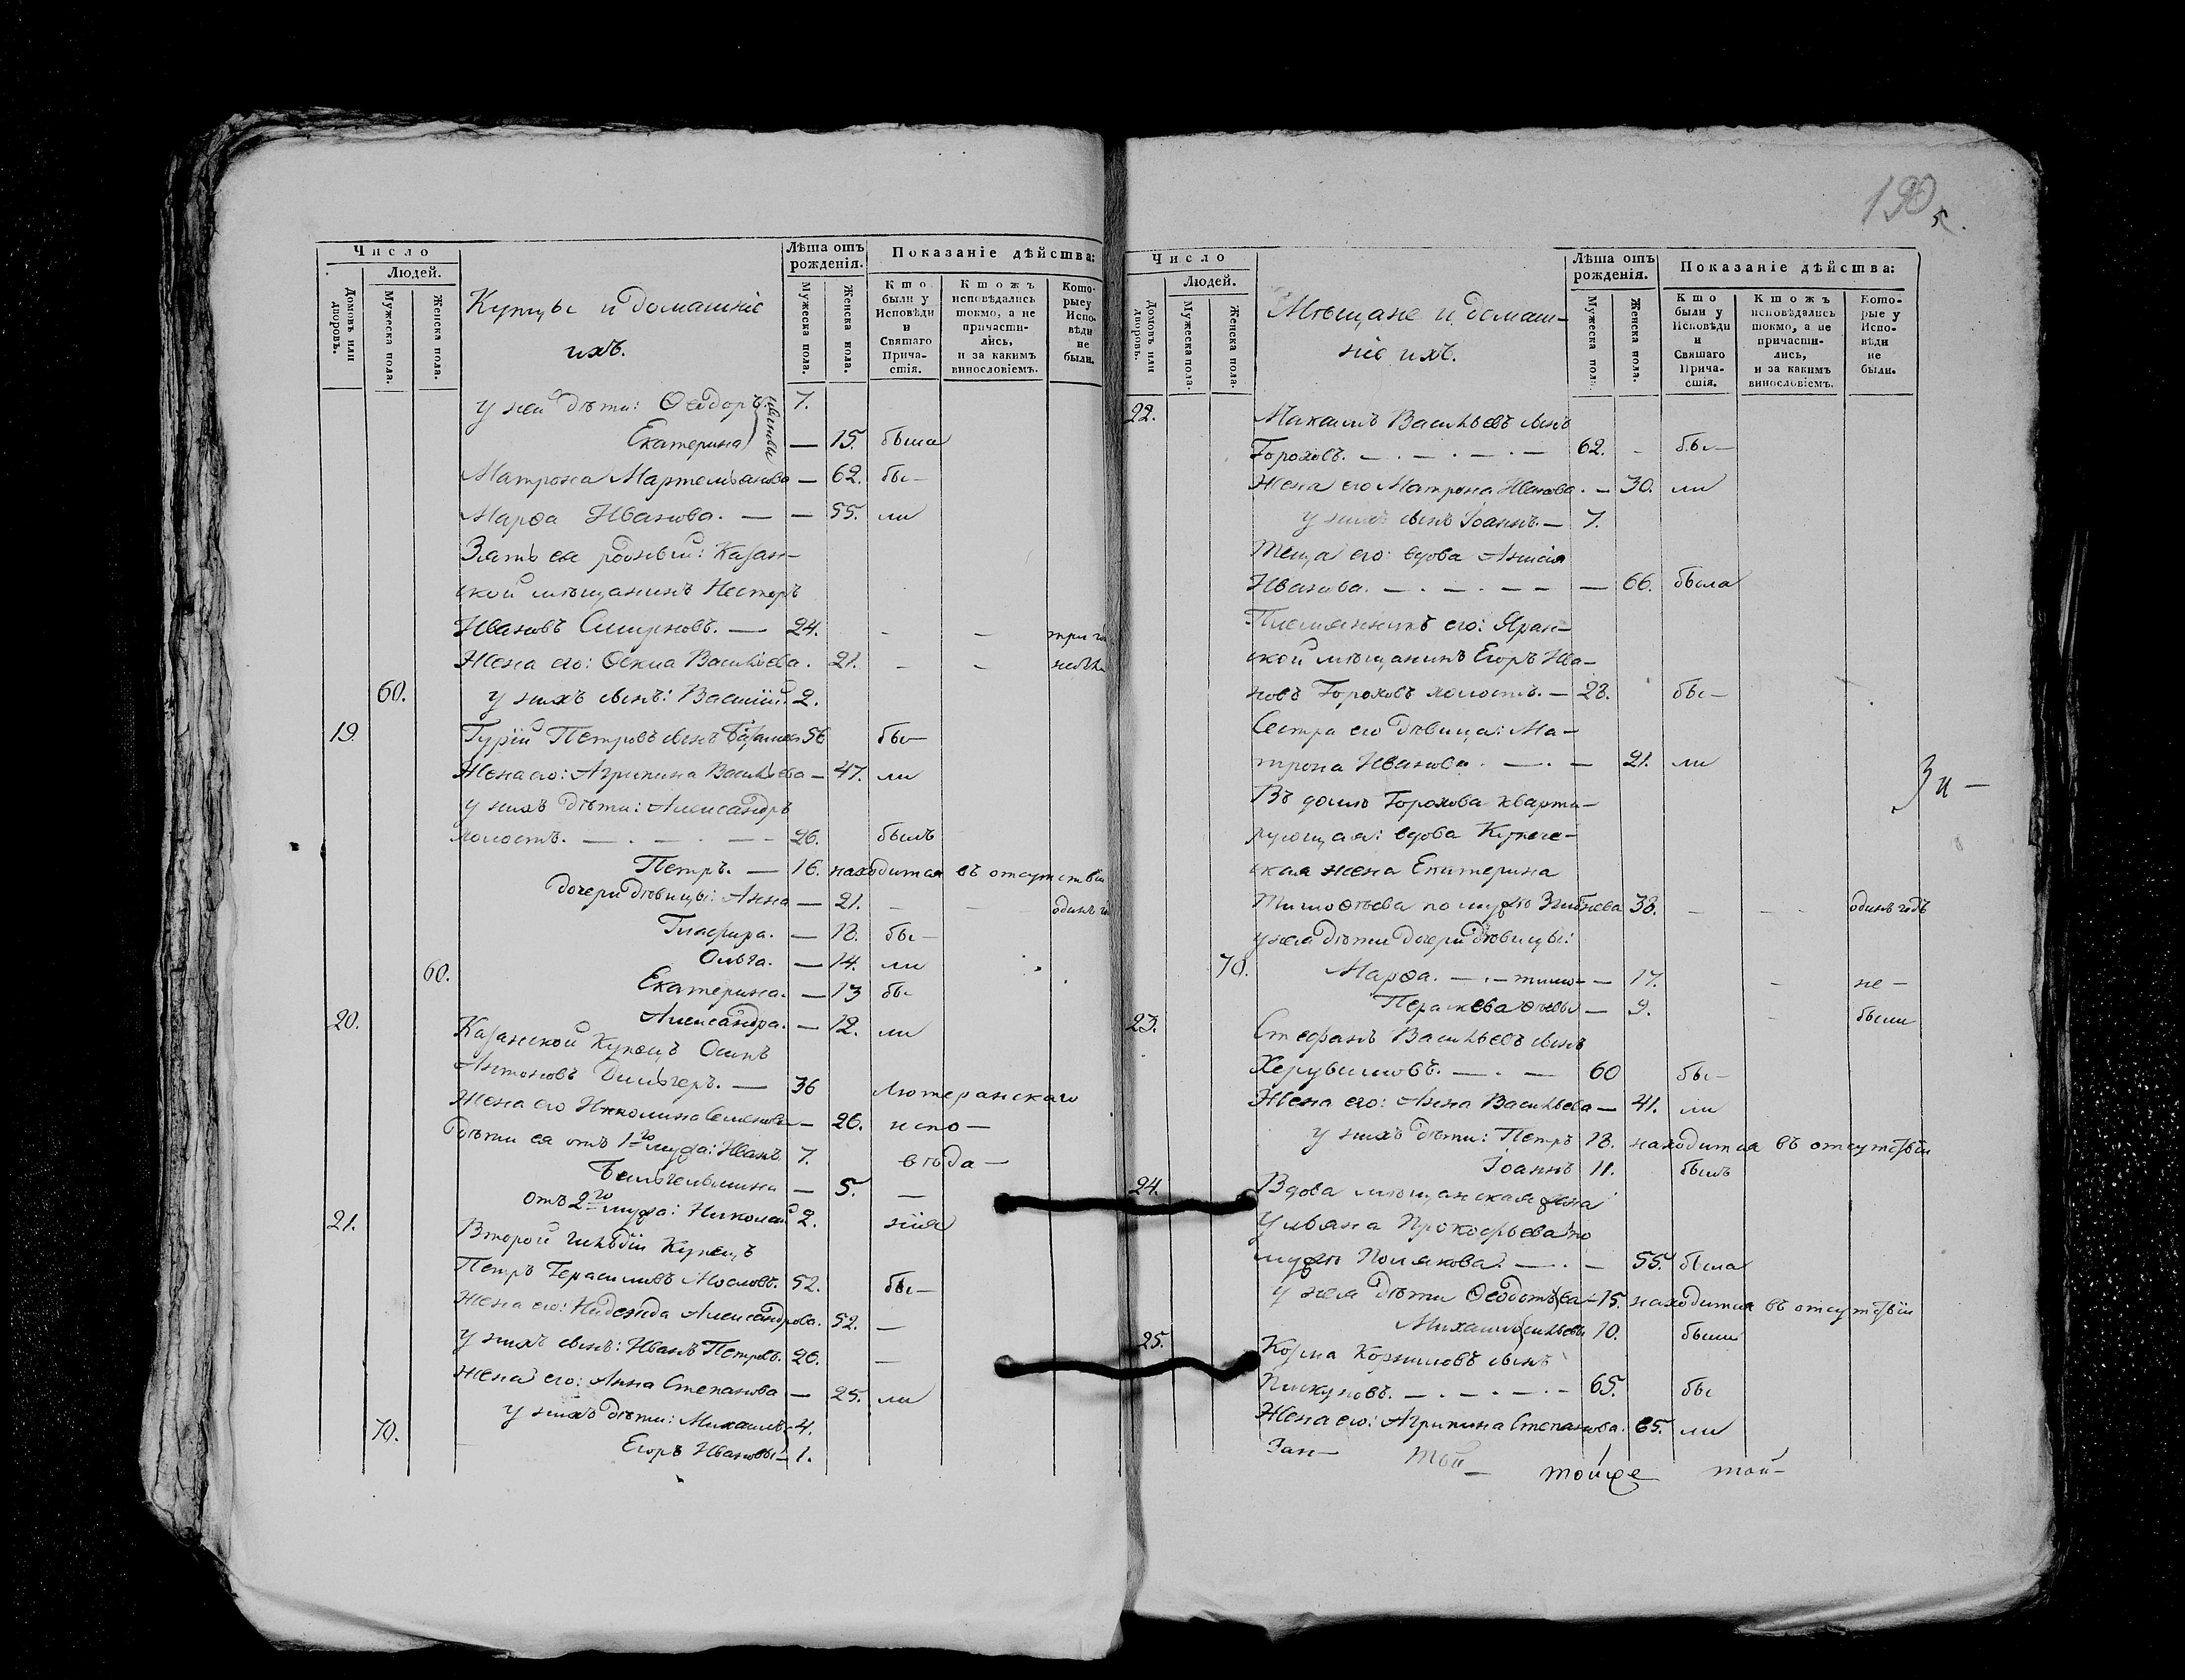 Число
Людей.
Домовъ или дворовъ.
Мужеска пола.
Женска пола.
Купцы и домашніе
ихъ.
Лѣта отъ рожденія.
Мужеска пола.
Женска пола.
Показаніе дѣйства:
Кто были у Исповѣди и Святаго Прича-стія.
Ктожъ исповѣдались токмо, а не причасти-лись, и за какимъ винословіемъ.
Кото-рые у Испо-вѣди не были.
у ней дѣти: Ѳеодоръ 7.
Екатерина — 15. была
Матрона Мартемьянова — 62. бы-
Марѳа Иванова. — — 55. ли
Зять ея родный: Казан-
ской мѣщанинъ Несторъ
Ивановъ Смирновъ. — 24. - —
Жена его: Ѳекла Васильева. 21. - - небы
60. у нихъ сынъ: Василій. 2.
19. Гурій Петровъ сынъ 56 бы-
Жена его: Агрипина Васильева — 47. ли
у нихъ дѣти: Александръ
холостъ. — . — . — - 26. былъ
Петръ. — 16. находится въ отсутствіи
дочери дѣвицы: Анна — 21. — — одинъ
Глафира. — 18. бы-
Ольга. — 14. ли
60. Екатерина. — 13 бы-
Александра. — 12. ли
20. Казанской Купецъ Осипъ
Антоновъ Дильгеръ. — 36 Лютеранскаго
Жена его Семенова — 26. испо-
дѣти ея отъ 1го мужа: Иванъ 7. вѣда-
— 5. —
отъ 2го мужа: Николай 2. нія
21. Второй гильдіи Купецъ
Петръ Герасимовъ 52. бы-
Жена его: Надежда Александрова. 52. —
у нихъ сынъ: Иванъ Петровъ. 26. —
Жена его: Анна Степанова — 25. ли
у нихъ дѣти: Михаилъ 4.
70. Егоръ Ивановы — 1.
190
5.
Число
Людей.
Домовъ или дворовъ.
Мужеска пола.
Женска пола.
Мѣщане и домаш-
ніе ихъ.
Лѣта отъ рожденія.
Мужеска пола.
Женска пола.
Показаніе дѣйства:
Кто были у Исповѣди и Святаго Прича-стія.
Ктожъ исповѣдались токмо, а не причасти-лись, и за какимъ винословіемъ.
Кото-рые у Испо-вѣди не были.
22. Максимъ Васильевъ сынъ
Гороховъ. — . — . — . — 62. - бы-
Жена его Матрона Иванова. — 30. ли
у нихъ сынъ Іоаннъ. — 7.
Теща его: вдова Анисія
Иванова. — . — . — — — 66. была
Племянникъ его: Яран-
ской мѣщанинъ Егоръ Ива-
новъ Гороховъ холостъ. — 28. бы-
Сестра его дѣвица: Ма-
трона Иванова. — . — 21. ли
Въ домѣ Горохова кварти-
рующая: вдова Купече-
ская жена Екатерина
Тимоѳѣева по мужѣ 38. — — одинъ годъ
у нея дѣти дочери дѣвицы:
70. Марѳа. — . — тимо- — 17. - не -
Параскева ѳѣевы — 9. - были
23. Стефанъ Васильевъ сынъ
Херувимовъ. — . — 60 бы-
Жена его: Анна Васильева — 41. ли
у нихъ дѣти: Петръ 18. находится въ отсутствіи
Іоаннъ 11. былъ
24. Вдова мѣщанская жена
Ульяна Прокофьева по
мужѣ Полякова. — . — 55. была
у нея дѣти 15. находится въ отсутствіи
Михаилъ 10. были
25. Козма Корниловъ сынъ
Пискуновъ. — . — . — . — 65. бы
Жена его: Агрипина Степанова. 65. ли
Зи —
Зап— той— тойже той—